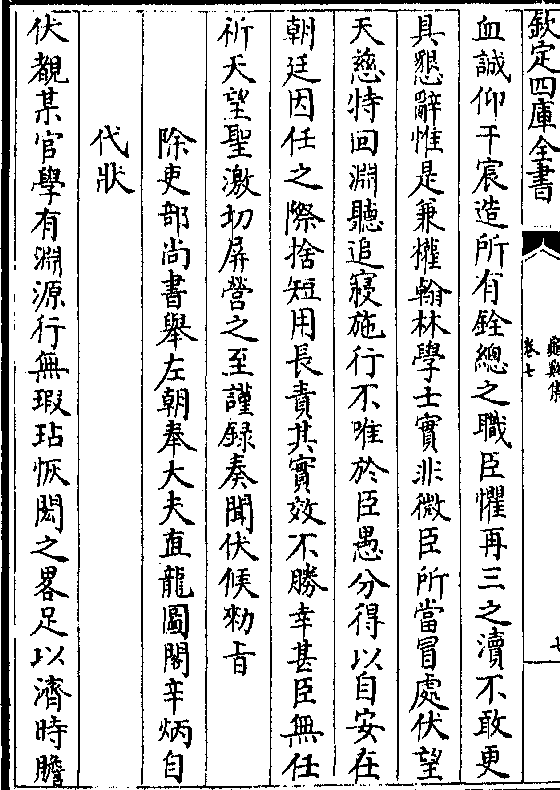 欽定四庫全書
龜谿集
卷七
七
血誠仰干宸造所有銓總之職臣懼再三之瀆不敢更
具懇辭惟是兼權翰林學士實非微臣所當冒處伏望
天慈特回淵聽追寢施行不唯於臣愚分得以自安在
朝廷因任之際捨短用長責其實效不勝幸甚臣無任
祈天望聖激切屏營之至謹録奏聞伏候勑旨
除吏部尚書舉左朝奉大夫直龍圖閣辛炳自
代狀
伏覩某官學有淵源行無瑕玷恢閎之畧足以濟時膽